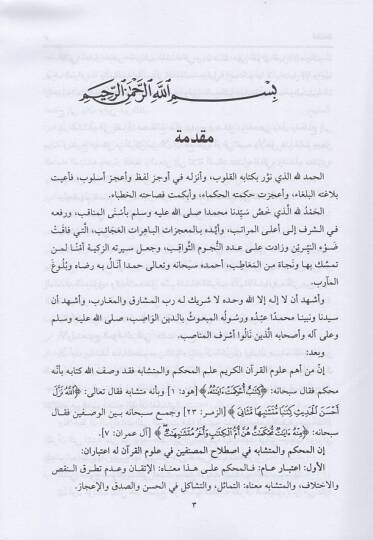 بسم الله الرحمن الرحيم
مقدمة
الحمد لله الذي نوّر بكتابه القلوب، وأنزله في أوجز لفظ وأعجز أسلوب، فأعيت
بلاغته البلغاء، وأعجزت حكمته الحكماء، وأبكمت فصاحته الخطباء.
الحَمْدُ لله الَّذي خَصَّ سَيِّدنا محمدا صلى الله عليه وسلم بأسْنَى المناقب، ورفعه
في الشرف إلى أعلى المراتب، وأيَّده بالمعجزات الباهرات العَجَائب، الَّتي فاقَتْ
ضَوْء النيِّرينِ وزادت على عدد النُّجوم الثَّواقب، وجعل سيرته الزكية أمْنًا لمن
تمسَّك بها ونَجاة من المَعَاطِب، أحمده سبحانه وتعالى حمدا أنَالُ به رضاه وبُلُوغَ
المآرب.
وأشهد أن لا إله إلا الله وحده لا شريك له رب المشارق والمغارب، وأشهد أن
سيدنا ونبينا محمدًا عَبْدُه ورسُوله المبعوثُ بالدين الوَاصِب، صلى الله عليه وسلم
وعلى آله وأصحابه الَّذين نَالُوا أشرف المناصب.
وبعد:
إنَّ من أهم علوم القرآن الكريم علم المحكم والمتشابه فقد وصف الله كتابه بأنَّه
محكم فقال سبحانه: ﴿كِتَٰبٌ أُحْكِمَتْ ءَايَٰتُهُۥ﴾ [هود: ١] وبأنه متشابه فقال تعالى: ﴿ٱللَّهُ نَزَّلَ
أَحْسَنَ ٱلْحَدِيثِ كِتَٰبًا مُّتَشَٰبِهًا مَّثَانِىَ﴾ [الزمر: ٢٣] وجميع سبحانه بين الوصفين فقال
سبحانه: ﴿مِنْهُ ءَايَٰتٌ مُّحْكَمَٰتٌ هُنَّ أُمُّ ٱلْكِتَٰبِ وَأُخَرُ مُتَشَٰبِهَٰتٌ﴾ [آل عمران: ٧].
إن المحكم والمتشابه في اصطلاح المصنفين في علوم القرآن له اعتباران:
الأول: اعتبار عام: فالمحكم على هذا معناه: الإتقان وعدم تطرق النقص
والاختلاف، والمتشابه معناه: التماثل، والتشاكل في الحسن والصدق والإعجاز.
٣